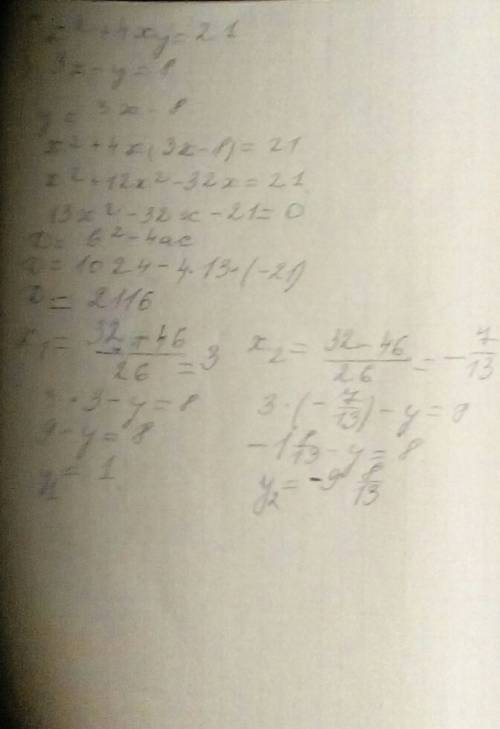 x² + 4xy = 21
3x - y = 8
y = 3x - 8
x² + 4x(3x - 8) = 21
x² + 12x² - 32x = 21
13x² - 32x - 21 = 0
D = b² - 4ac
D = 1024 - 4·13·(-21)
D = 2116
x₁ = (32 + 46)/26 = 3 x₂ = (32 - 46)/26 = -7/13
3·3 - y = 8 3·(-7/13) - y = 8
9 - y = 8 -1 8/13 - y = 8
y₁ = 1 y₂ = -9 8/13